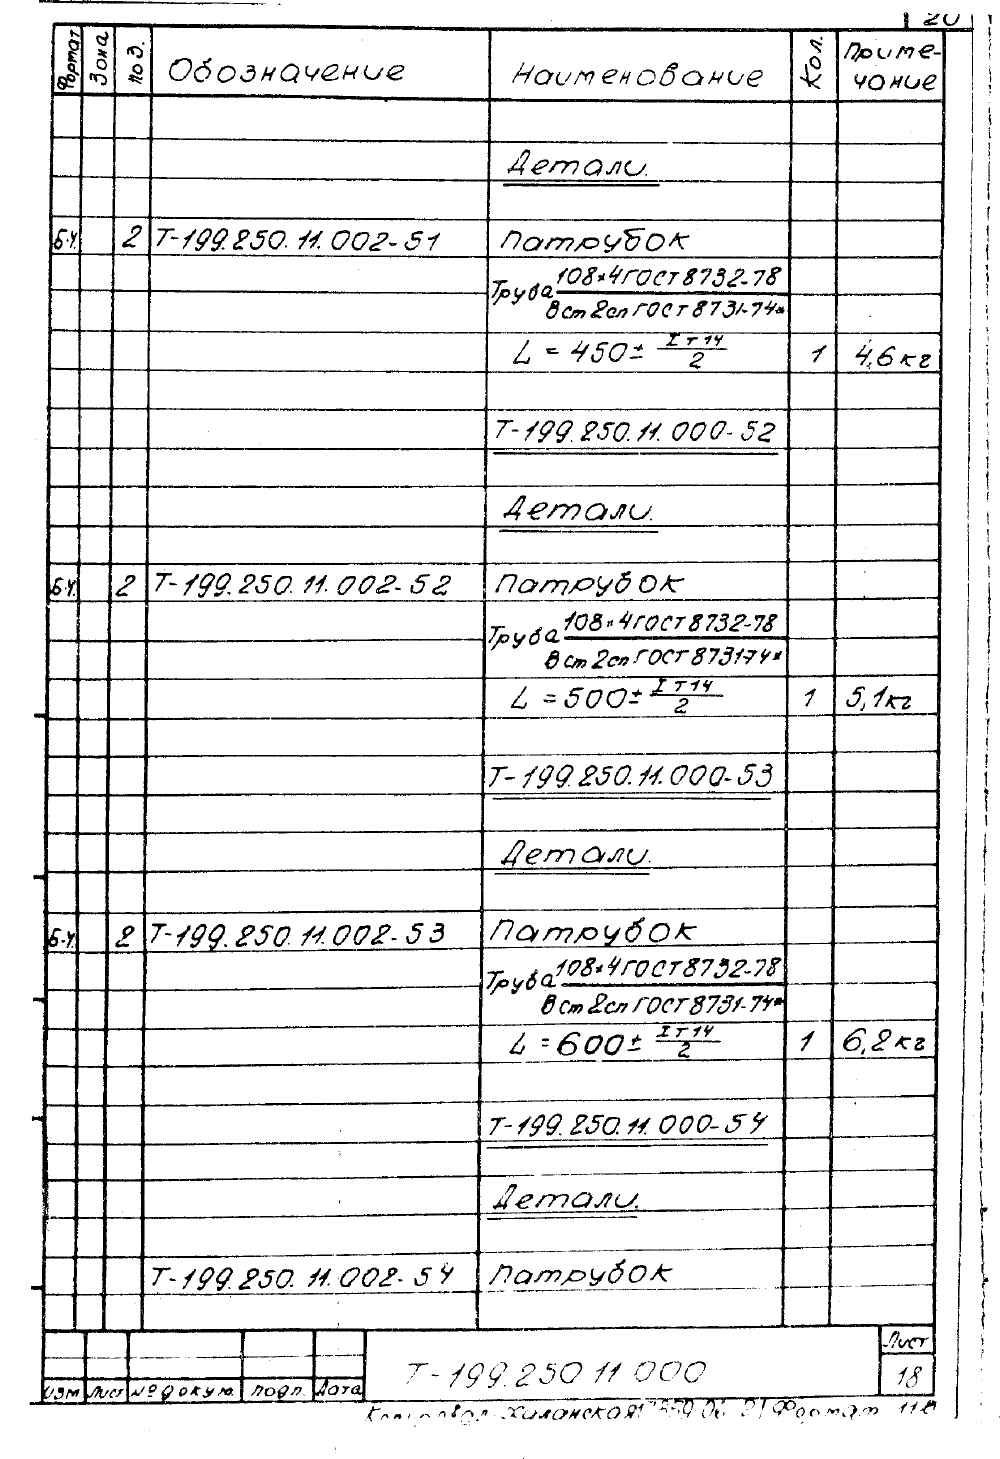 20
Формат Зона Поз. Обозначение Наименование Кол. Приме-
чание
Детали.
Б.Ч. 2 Т-199.250.11.002-51 Патрубок
Труба 108×4 ГОСТ 8732-78
В ст 2сп ГОСТ 8731-74*
L = 450 ± IT14/2 1 4,6 кг
Т-199.250.11.000-52
Детали.
Б.Ч. 2 Т-199.250.11.002-52 Патрубок
Труба 108×4 ГОСТ 8732-78
В ст 2сп ГОСТ 8731-74*
L = 500 ± IT14/2 1 5,1 кг
Т-199.250.11.000-53
Детали.
Б.Ч. 2 Т-199.250.11.002-53 Патрубок
Труба 108×4 ГОСТ 8732-78
В ст 2сп ГОСТ 8731-74*
L = 600 ± IT14/2 1 6,2 кг
Т-199.250.11.000-54
Детали.
Т-199.250.11.002-54 Патрубок
Т-199.250 11 000
Лист
18
Изм Лист № докум. подп. Дата
Копировал Халанская Формат 11